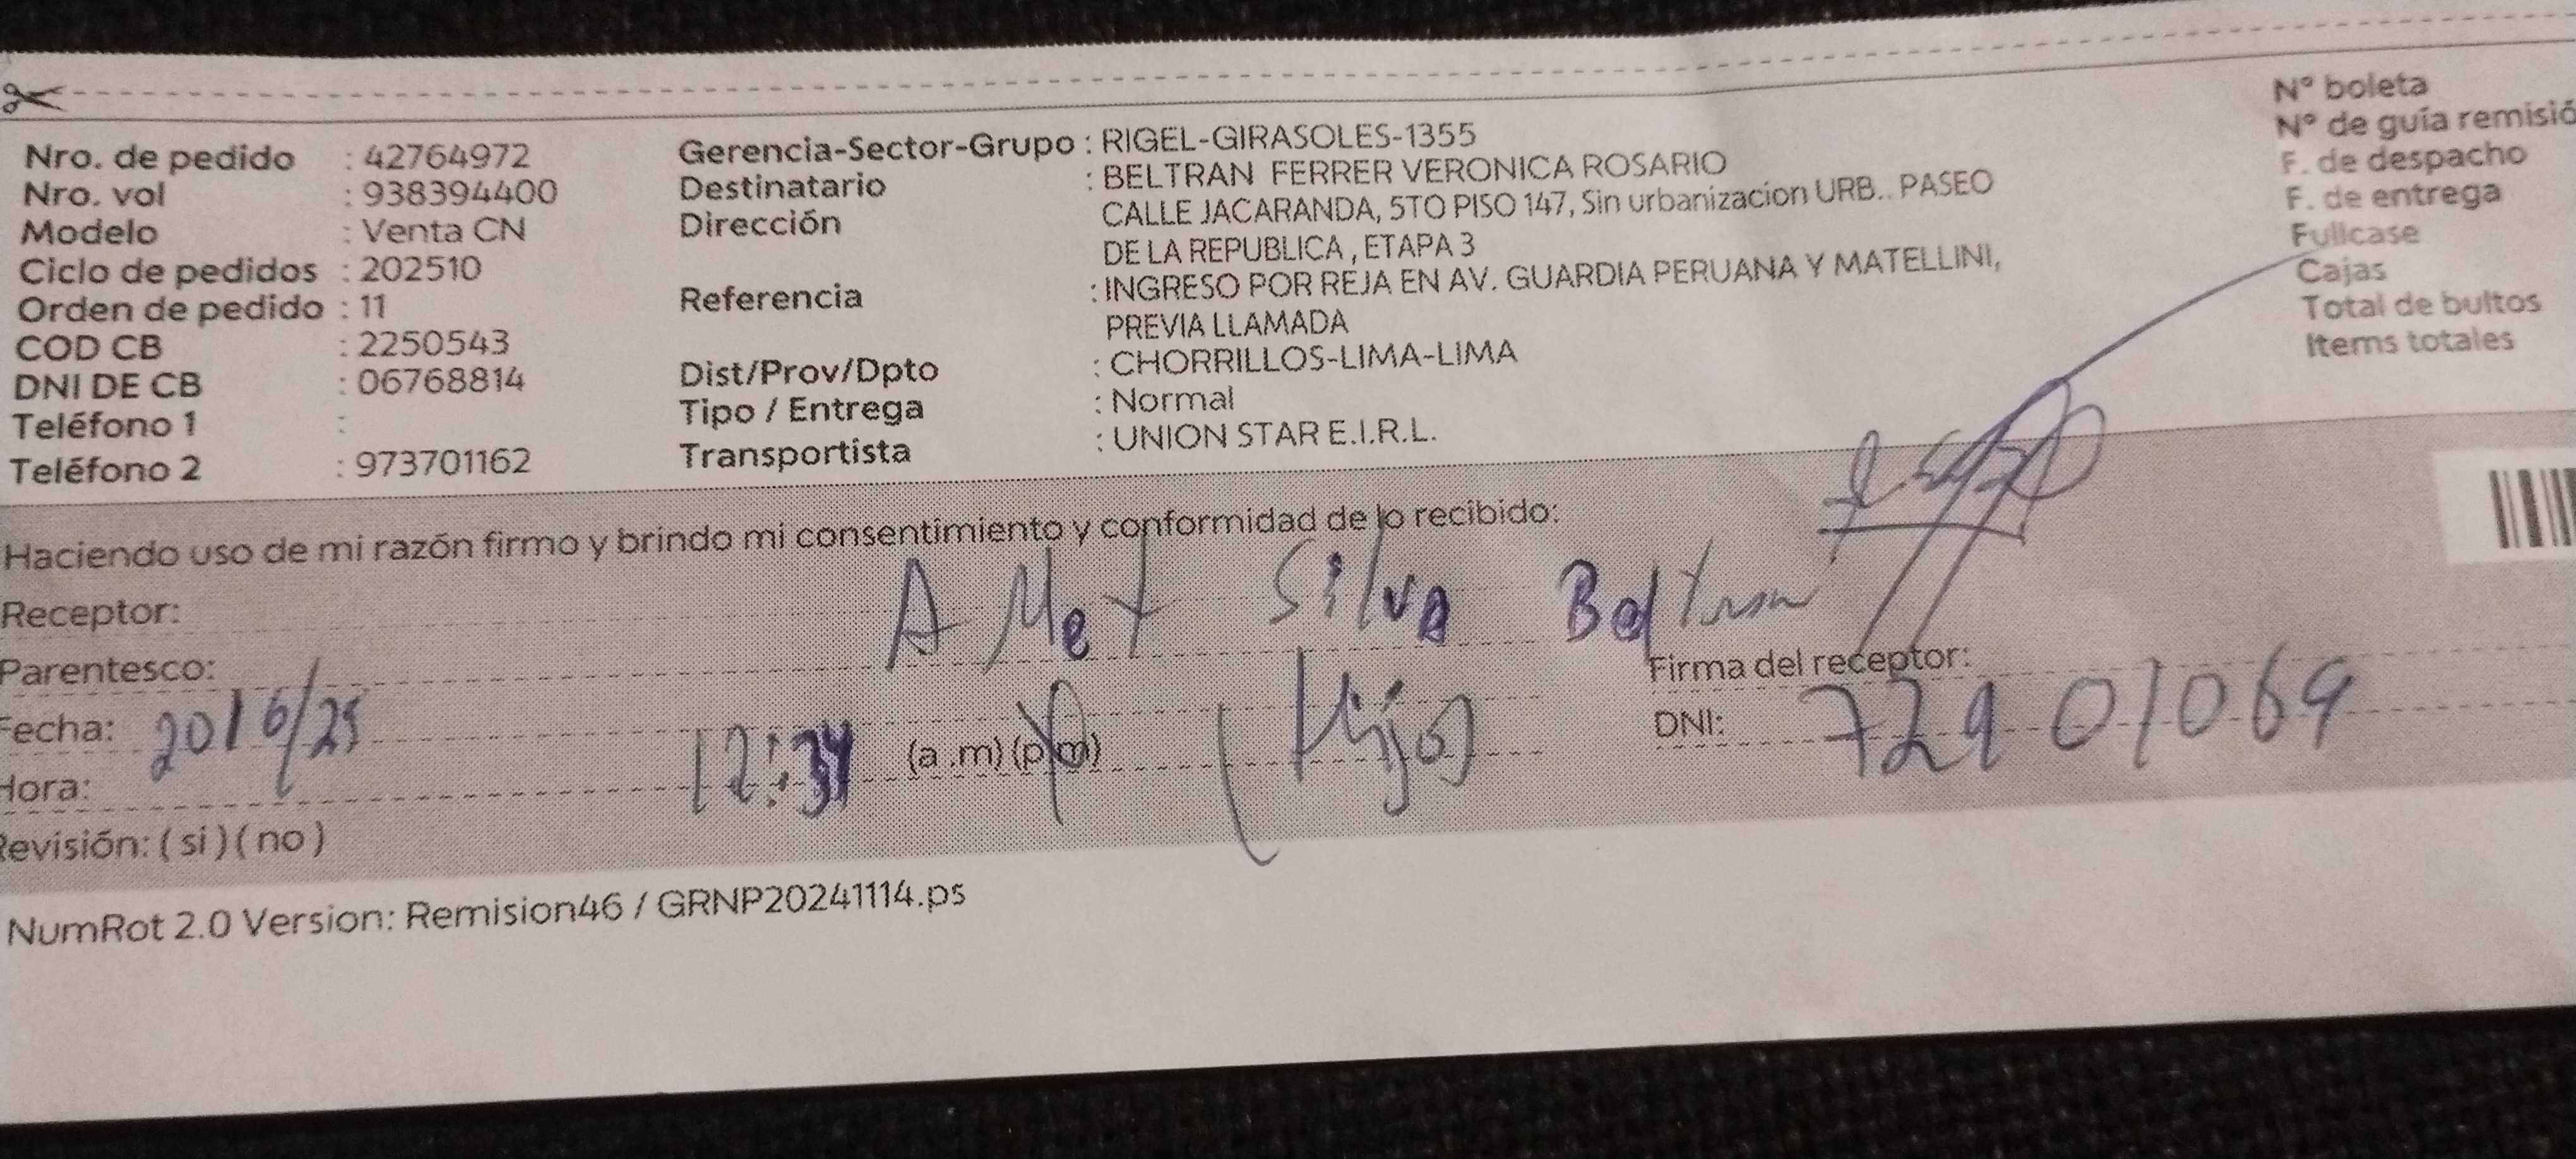 Nro. de pedido : 42764972
Nro. vol : 938394400
Modelo : Venta CN
Ciclo de pedidos : 202510
Orden de pedido : 11
COD CB : 2250543
DNI DE CB : 06768814
Teléfono 1 :
Teléfono 2 : 973701162
Gerencia-Sector-Grupo : RIGEL-GIRASOLES-1355
Destinatario : BELTRAN FERRER VERONICA ROSARIO
Dirección CALLE JACARANDA, 5TO PISO 147, Sin urbanizacion URB.. PASEO
DE LA REPUBLICA , ETAPA 3
Referencia : INGRESO POR REJA EN AV. GUARDIA PERUANA Y MATELLINI,
PREVIA LLAMADA
Dist/Prov/Dpto : CHORRILLOS-LIMA-LIMA
Tipo / Entrega : Normal
Transportista : UNION STAR E.I.R.L.
N° boleta
N° de guía remisió
F. de despacho
F. de entrega
Fullcase
Cajas
Total de bultos
Items totales
Haciendo uso de mi razón firmo y brindo mi consentimiento y conformidad de lo recibido:
Receptor: AMet Silva Beltran
Parentesco: (Hijo)
Firma del receptor:
Fecha: 20/6/25
DNI: 72901069
Hora: 12:34 (a .m) (p.m)
Revisión: ( si ) ( no )
NumRot 2.0 Version: Remision46 / GRNP20241114.ps